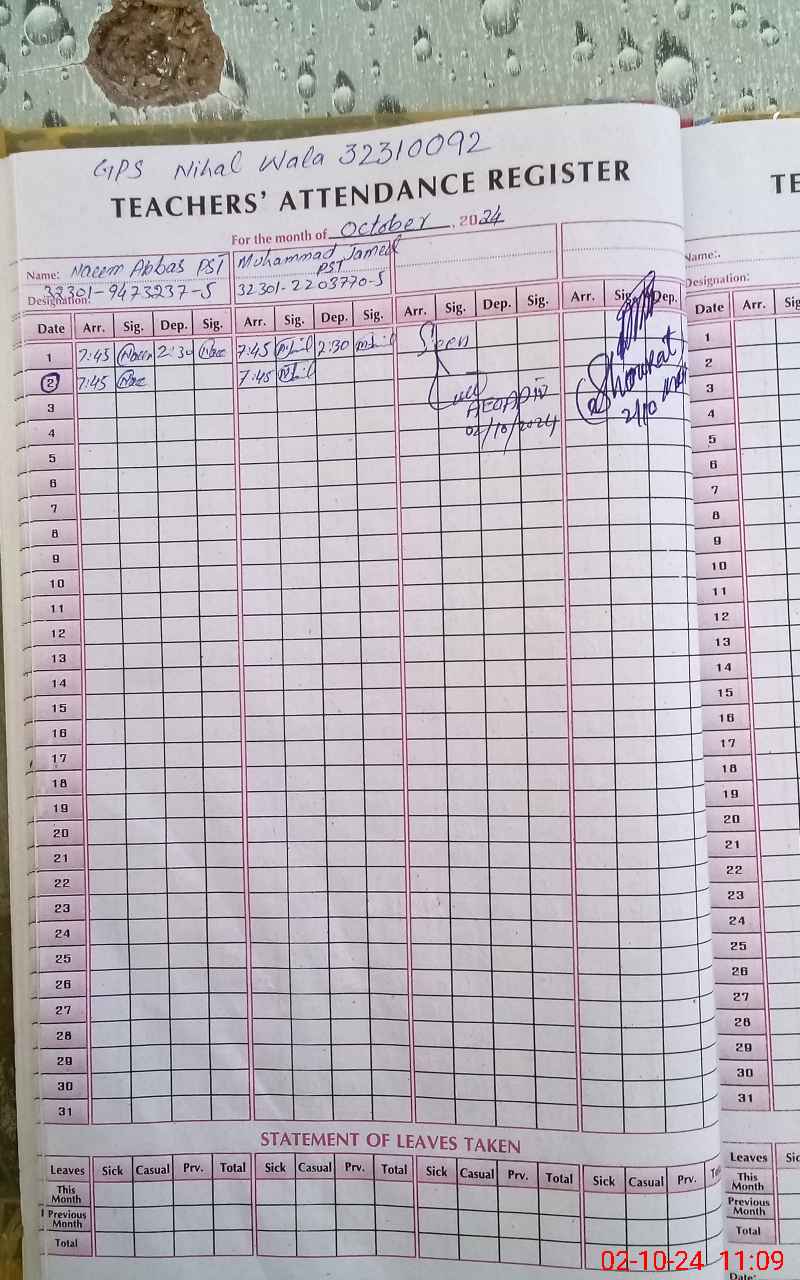 GPS Nihal Wala 32310092
TEACHERS' ATTENDANCE REGISTER
For the month of October, 2024
Name: Naeem Abbas PST Muhammad Jameel
PST
Designation: 32301-9473237-5 32301-2203770-5
Date Arr. Sig. Dep. Sig. Arr. Sig. Dep. Sig. Arr. Sig. Dep. Sig. Arr. Sig. Dep.
1 7:45 2:30 7:45 2:30 Seen
2 7:45 7:45
Shoukat
02/10/2024
2/10
3
4
5
6
7
8
9
10
11
12
13
14
15
16
17
18
19
20
21
22
23
24
25
26
27
28
29
30
31
STATEMENT OF LEAVES TAKEN
Leaves Sick Casual Prv. Total Sick Casual Prv. Total Sick Casual Prv. Total Sick Casual Prv.
This Month
Previous Month
Total
TE
Name:.
Designation:
Date Arr. Sig
1
2
3
4
5
6
7
8
9
10
11
12
13
14
15
16
17
18
19
20
21
22
23
24
25
26
27
28
29
30
31
Leaves Sic
This Month
Previous Month
Total
Date:
02-10-24 11:09